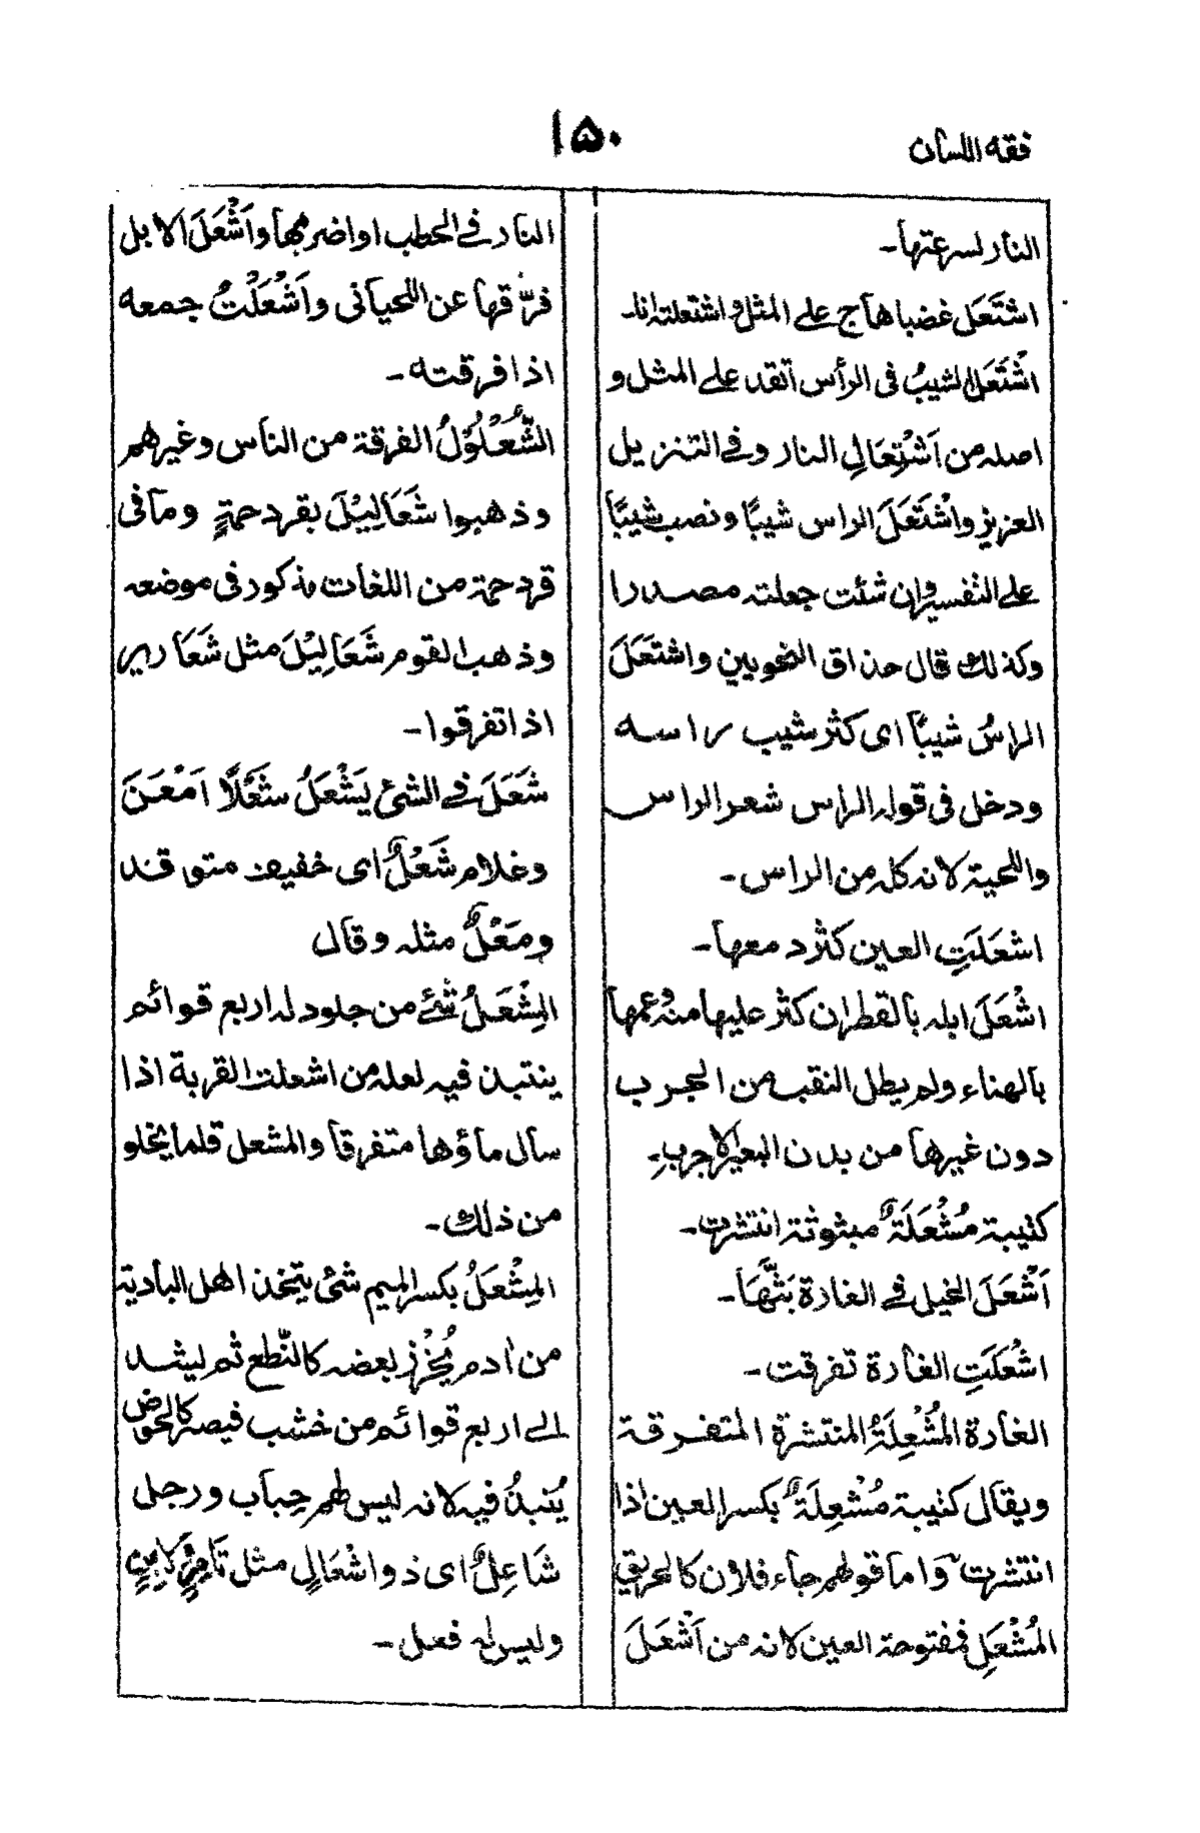 فقه اللسان
۱۵۰
النار لسرعتها۔
اشتَعَل غضبا هاج على المثل و اشتعلته انا۔
اشْتَعَل الشيبُ فى الرأس اتقد على المثل و
اصله من اَشْتِعَالِ النار و فى التنزيل
العزيز واشْتَعَلَ الراس شيبًا و نصب شيبًا
على التفسير وان شئت جعلته مصدرا
وكذلك قال حذاق النحويين واشتَعَلَ
الراسُ شيبًا اى كثر شيب راسه
ودخل فى قوله الراس شعر الراس
واللحية لانه كله من الراس۔
اشعَلَتِ العين كثر دمعها۔
اشْعَلَ ابله بالقطران كثر عليها منه وعمها
بالهناء ولم يطل النقب من الجرب
دون غيرها من بدن البعير الاجربِ۔
كتيبة مُشْعَلَةٌ مبثوثة انتشرت۔
اَشْعَلَ الخيل فى الغارة بَثَّهَا۔
اشْعَلَتِ الغارة تفرقت۔
الغارة المُشْعِلَةُ المنتشرة المتفرقة
ويقال كتيبة مُشْعِلَةٌ بكسر العين اذا
انتشرت وَاما قولهم جاء فلان كالحريق
المُشْعَلِ فمفتوحة العين لانه من اَشْعَلَ
النار فى الحطب اواضرمها واَشْعَلَ الابل
فرّقها عن اللحيانى واَشْعَلْتُ جمعه
اذا فرقته۔
الشُّعْلُوْلُ الفرقة من الناس وغيرهم
وذهبوا شَعَالِيْلَ بقردحمةٍ وما فى
قردحمة من اللغات مذكور فى موضعه
وذهب القوم شَعَالِيْلَ مثل شَعَارير
اذا تفرقوا۔
شَعَلَ فى الشئ يَشْعَلُ شَعْلًا اَمْعَنَ
وغلام شَعْلٌ اى خفيف متوقد
ومَعْلٌ مثله وقال
المِشْعَلُ شئ من جلود له اربع قوائم
ينتبذ فيه لعله من اشعلت القربة اذا
سال ماؤها متفرقا والمشعل قلما يخلو
من ذلك۔
المِشْعَلُ بكسر الميم شئ يتخذ اهل البادية
من ادم يُخْرَز بعضه كالنّطع ثم يشد
الى اربع قوائم من خشب فيصير كالحوض
يُنبذُ فيه لانه ليس لهم حِباب ورجل
شَاعِلٌ اى ذو اشْعَالٍ مثل تَامِرٍ وَلَابِنٍ
وليس له فعل۔